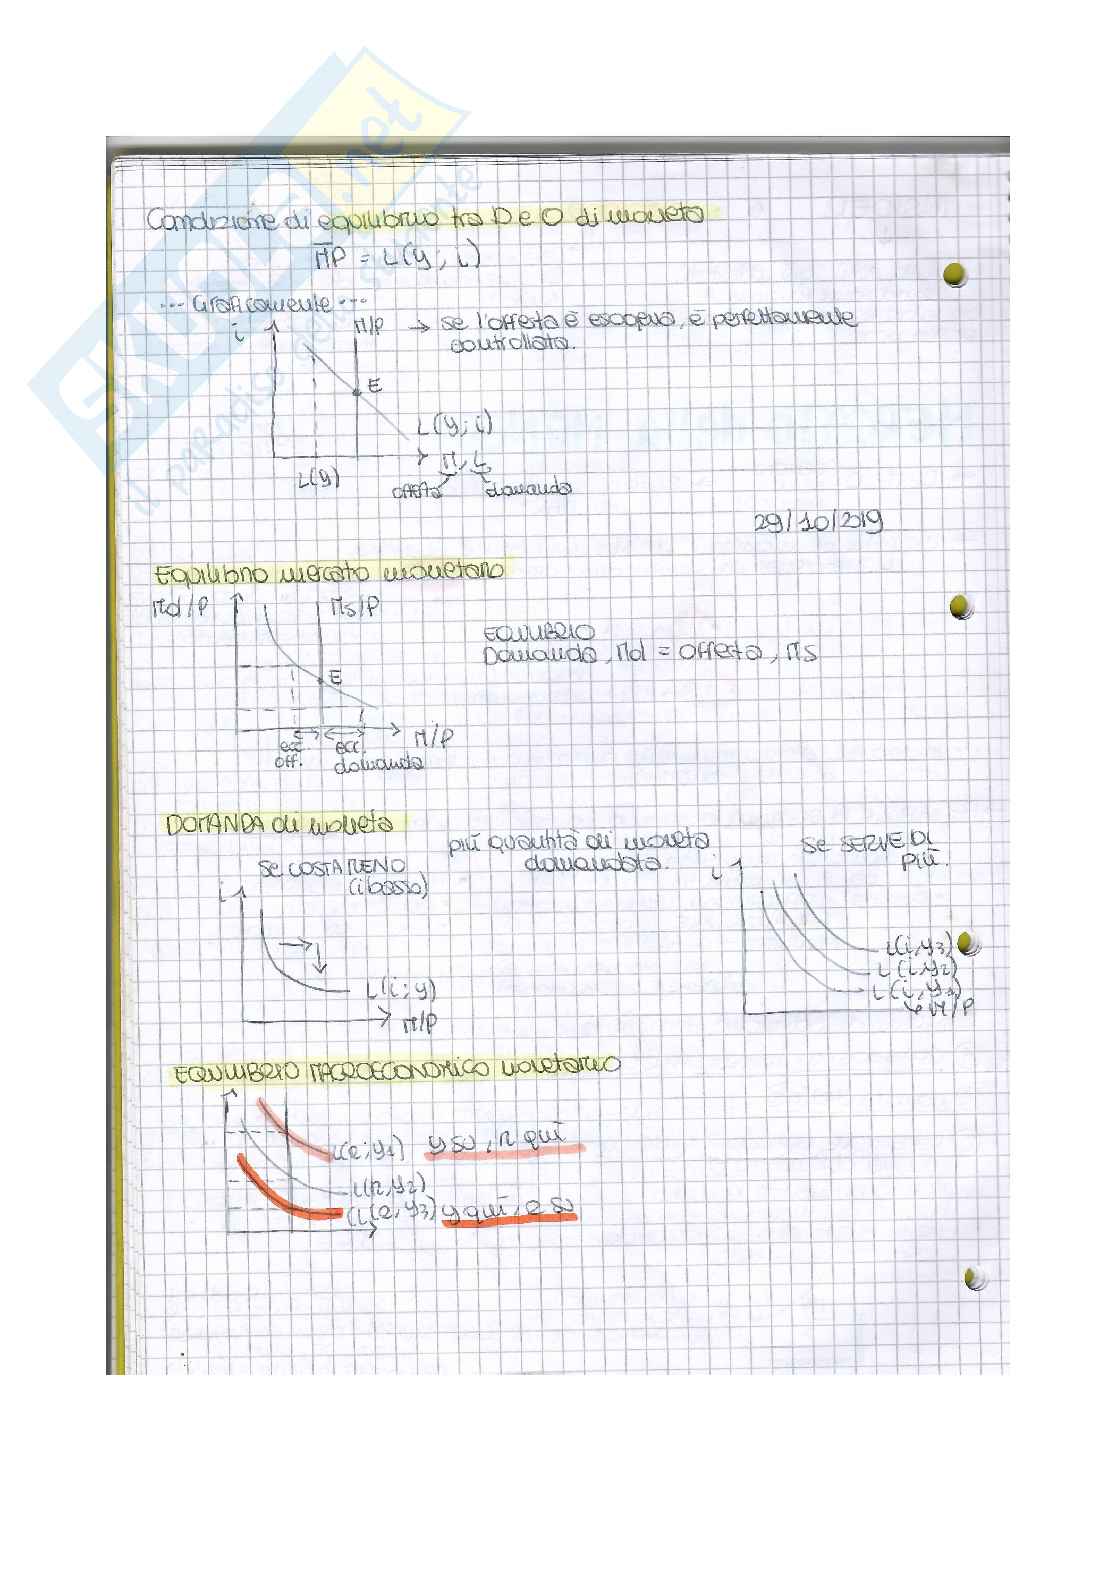 SKUOLA.net
il paradiso dello studente
Condizione di equilibrio tra D e O di moneta
M̅P = L(y ; i)
--- Graficamente ---
i
M/P → se l'offerta è esogena, è perfettamente
controllata.
E
L(y; i)
L(y)
M, L
offerta domanda
29/10/2019
Equilibrio mercato monetario
Md/P
Ms/P
EQUILIBRIO
Domanda, Md = offerta, Ms
E
M/P
ecc. ecc.
off. domanda
DOMANDA di moneta
più quantità di moneta
domandata.
se SERVE DI
PIÙ.
se COSTA MENO
(i basso)
i
i
L(i,y3)
L(i,y2)
L(i,y1)
M/P
L(i; y)
M/P
EQUILIBRIO MACROECONOMICO monetario
L(r;y1) y su, r qui
L(r,y2)
L(r,y3) y qui, r su